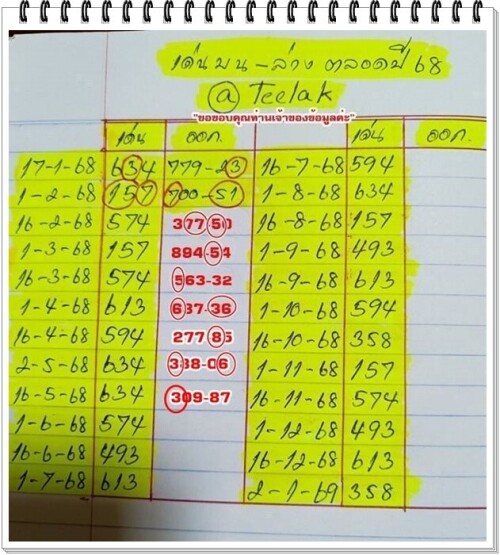 เด่นบน-ล่าง ตลอดปี 68
@ Teelak
"ขอขอบคุณท่านเจ้าของข้อมูลค่ะ"
เด่น ออก. เด่น ออก.
17-1-68 634 779-23 16-7-68 594
1-2-68 157 700-51 1-8-68 634
16-2-68 574 377-50 16-8-68 157
1-3-68 157 894-54 1-9-68 493
16-3-68 574 563-32 16-9-68 613
1-4-68 613 637-36 1-10-68 594
16-4-68 594 277-85 16-10-68 358
2-5-68 634 388-06 1-11-68 157
16-5-68 634 309-87 16-11-68 574
1-6-68 574 1-12-68 493
16-6-68 493 16-12-68 613
1-7-68 613 2-1-69 358